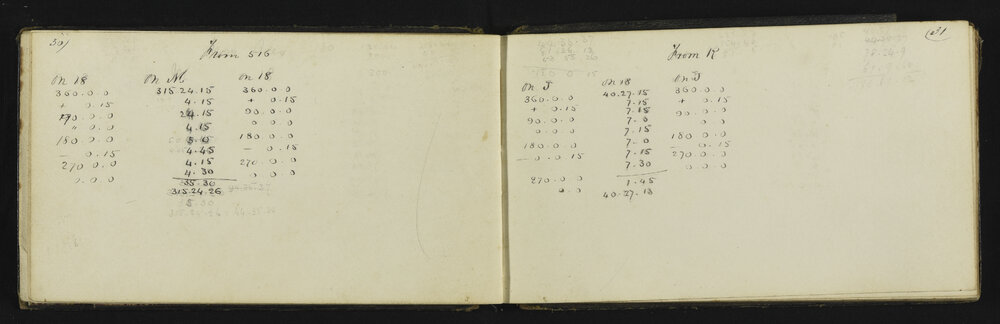 30)
From 516
On 18
360.0.0
+ 0.15
90.0.0
" 0.0
180.0.0
- 0.15
270.0.0
0.0.0
On M
315.24.15
4.15
24.15
4.15
5.0
4.45
4.15
4.30
35.30
315.24.26
5.30
On 18
360.0.0
+ 0.15
90.0.0
0.0.0
180.0.0
- 0.15
270.0.0
0.0.0
(31
From K
On J
360.0.0
+ 0.15
90.0.0
0.0.0
180.0.0
- 0.0.15
270.0.0
0.0
On 18
40.27.15
7.15
7.15
7.0
7.15
7.0
7.15
7.30
1.45
40.27.13
On J
360.0.0
+ 0.15
90.0.0
0.0
180.0.0
- 0.15
270.0.0
0.0.0